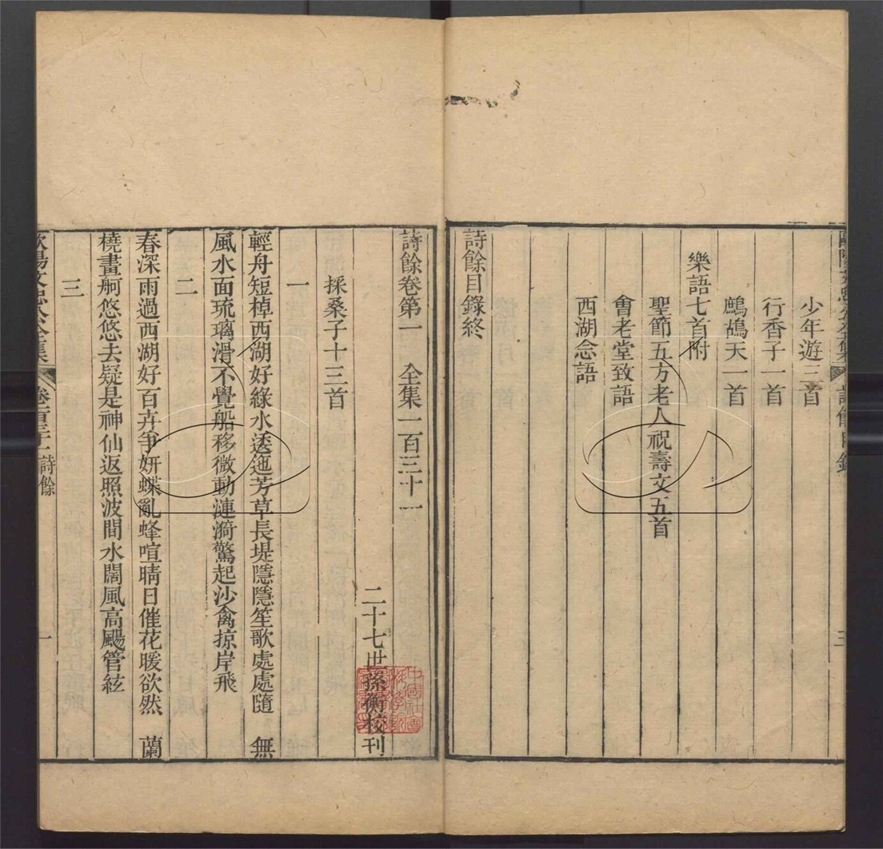 少年遊三首
行香子一首
鷓鴣天一首
樂語七首附
聖節五方老人祝壽文五首
會老堂致語
西湖念語
詩餘目錄終
詩餘卷第一 全集一百三十一
二十七世孫衡校刊
採桑子十三首
一
輕舟短棹西湖好綠水透迤芳草長堤隱隱笙歌處處隨 無
風水面琉璃滑不覺船移微動漣漪驚起沙禽掠岸飛
二
春深雨過西湖好百卉爭妍蝶亂蜂喧晴日催花暖欲然 蘭
橈畫舸悠悠去疑是神仙返照波間水闊風高颺管絃
三
歐陽文忠公全集 詩餘 一